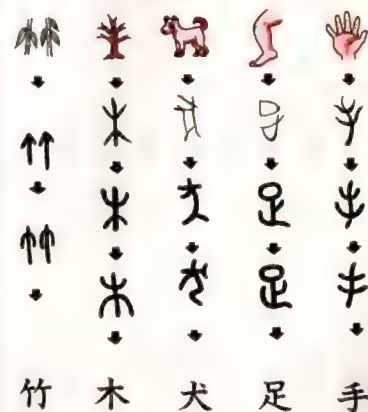 竹 木 犬 足 手